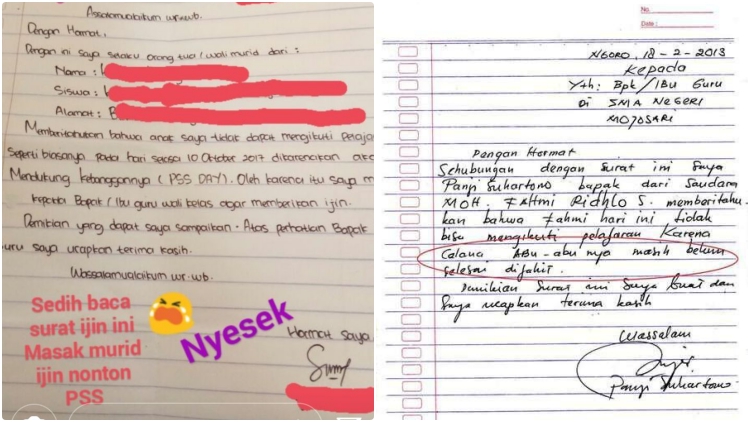 Assalamualaikum wr.wb.
Dengan Hormat,
Dengan ini saya selaku orang tua / wali murid dari :
Nama :
Siswa :
Alamat : B
Memberitahukan bahwa anak saya tidak dapat mengikuti pelaja
Seperti biasanya Pada hari selasa 10 Oktober 2017 dikarenakan aka
Mendukung kebanggannya (PSS DAY). Oleh karena itu saya m
kepada Bapak / Ibu guru wali kelas agar memberikan ijin.
Demikian yang dapat saya sampaikan. Atas perhatian Bapak
guru saya ucapkan terima kasih.
Wassalamualaikum wr.wb.
Hormat saya
Sedih baca
surat ijin ini
Masak murid
ijin nonton
PSS
Nyesek
No.
Date :
NGORO, 18-2-2013
Kepada
Yth: Bpk/IBu Guru
Di SMA NEGERI
MOJOSARI
Dengan Hormat
Sehubungan dengan surat ini Saya
Panji Suhartono bapak dari Saudara
MOH. FAHmi Ridhlo S. memberitahu-
kan bahwa Fahmi hari ini tidak
bisa mengikuti pelajaran Karena
Celana ABU-abu nya masih belum
selesai dijahit.
Demikian Surat ini Saya buat dan
Saya ucapkan terima kasih
Wassalam
Panji Suhartono